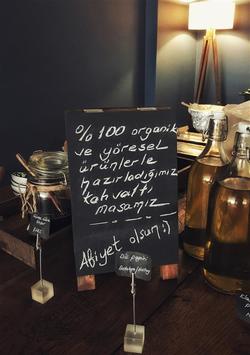 % 100 organik
ve yöresel
ürünlerle
hazırladığımız
kahvaltı
masamız
Afiyet olsun :)